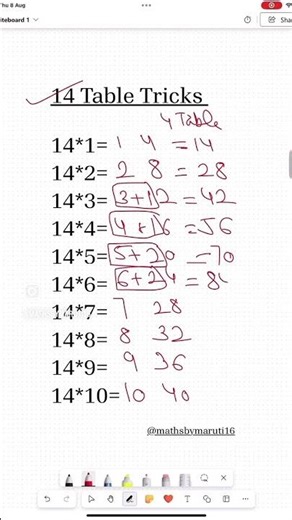 Thu 8 Aug
iteboard 1
Sha
14 Table Tricks
4 Table
14*1= 1 4 =14
14*2= 2 8 =28
14*3= 3+12 =42
14*4= 4+16 =56
14*5= 5+20 -70
14*6= 6+24 =84
14*7= 7 28
14*8= 8 32
14*9= 9 36
14*10= 10 40
@mathsbymaruti16